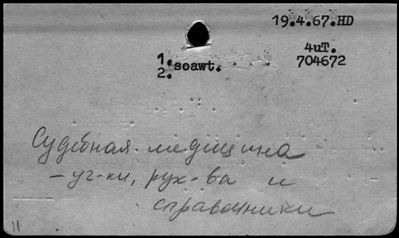 19.4.67.HD
4uT.
704672
1. soawt.
2.
Судебная медицина
- уч-ки, рук-ва и
справочники
11